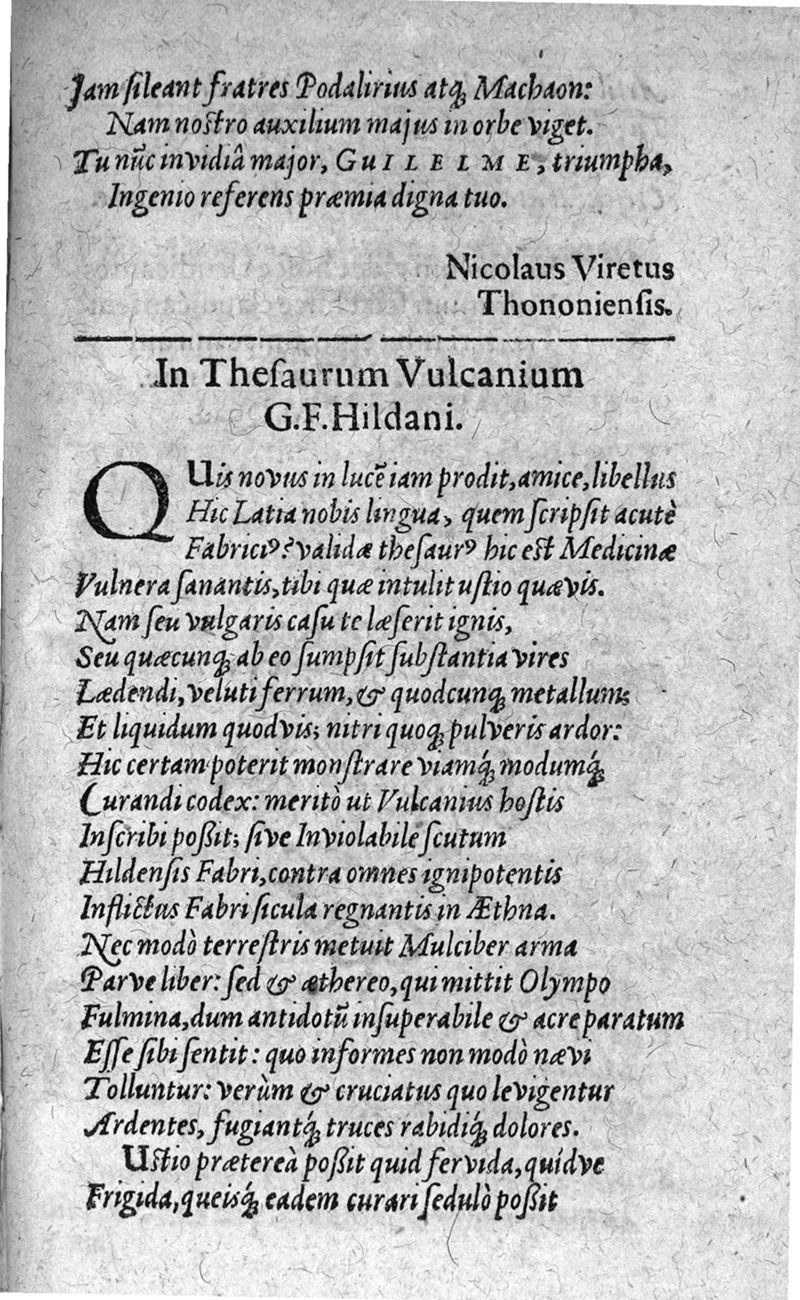 Jam ſileant fratres Podalirius atq́ꝫ Machaon:
Nam noſtro auxilium majus in orbe viget.
Tu nūc invidiâ major, GUILELME, triumpha,
Ingenio referens præmia digna tuo.
Nicolaus Viretus
Thononienſis.
In Theſaurum Vulcanium
G.F.Hildani.
QUis novus in lucē iam prodit, amice, libellus
Hic Latia nobis lingua, quem ſcripſit acutè
Fabriciꝰ? validæ theſaurꝰ hic eſt Medicinæ
Vulnera ſanantis, tibi quæ intulit uſtio quævis.
Nam ſeu vulgaris caſu te læſerit ignis,
Seu quæcunqꝫ ab eo ſumpſit ſubſtantia vires
Lædendi, veluti ferrum, & quodcunqꝫ metallum;
Et liquidum quodvis; nitri quoqꝫ pulveris ardor:
Hic certam poterit monſtrare viamq́ꝫ modumq́ꝫ
Curandi codex: meritò ut Vulcanius hoſtis
Inſcribi poßit; ſive Inviolabile ſcutum
Hildenſis Fabri, contra omnes ignipotentis
Inflictus Fabri ſicula regnantis in Æthna.
Nec modò terreſtris metuit Mulciber arma
Parve liber: ſed & æthereo, qui mittit Olympo
Fulmina, dum antidotū inſuperabile & acre paratum
Eſſe ſibi ſentit: quo informes non modò nævi
Tolluntur: verùm & cruciatus quo levigentur
Ardentes, fugiantq́ꝫ truces rabidiq́ꝫ dolores.
Uſtio prætereà poßit quid fervida, quidve
Frigida, queisq́ꝫ eadem curari ſedulò poßit